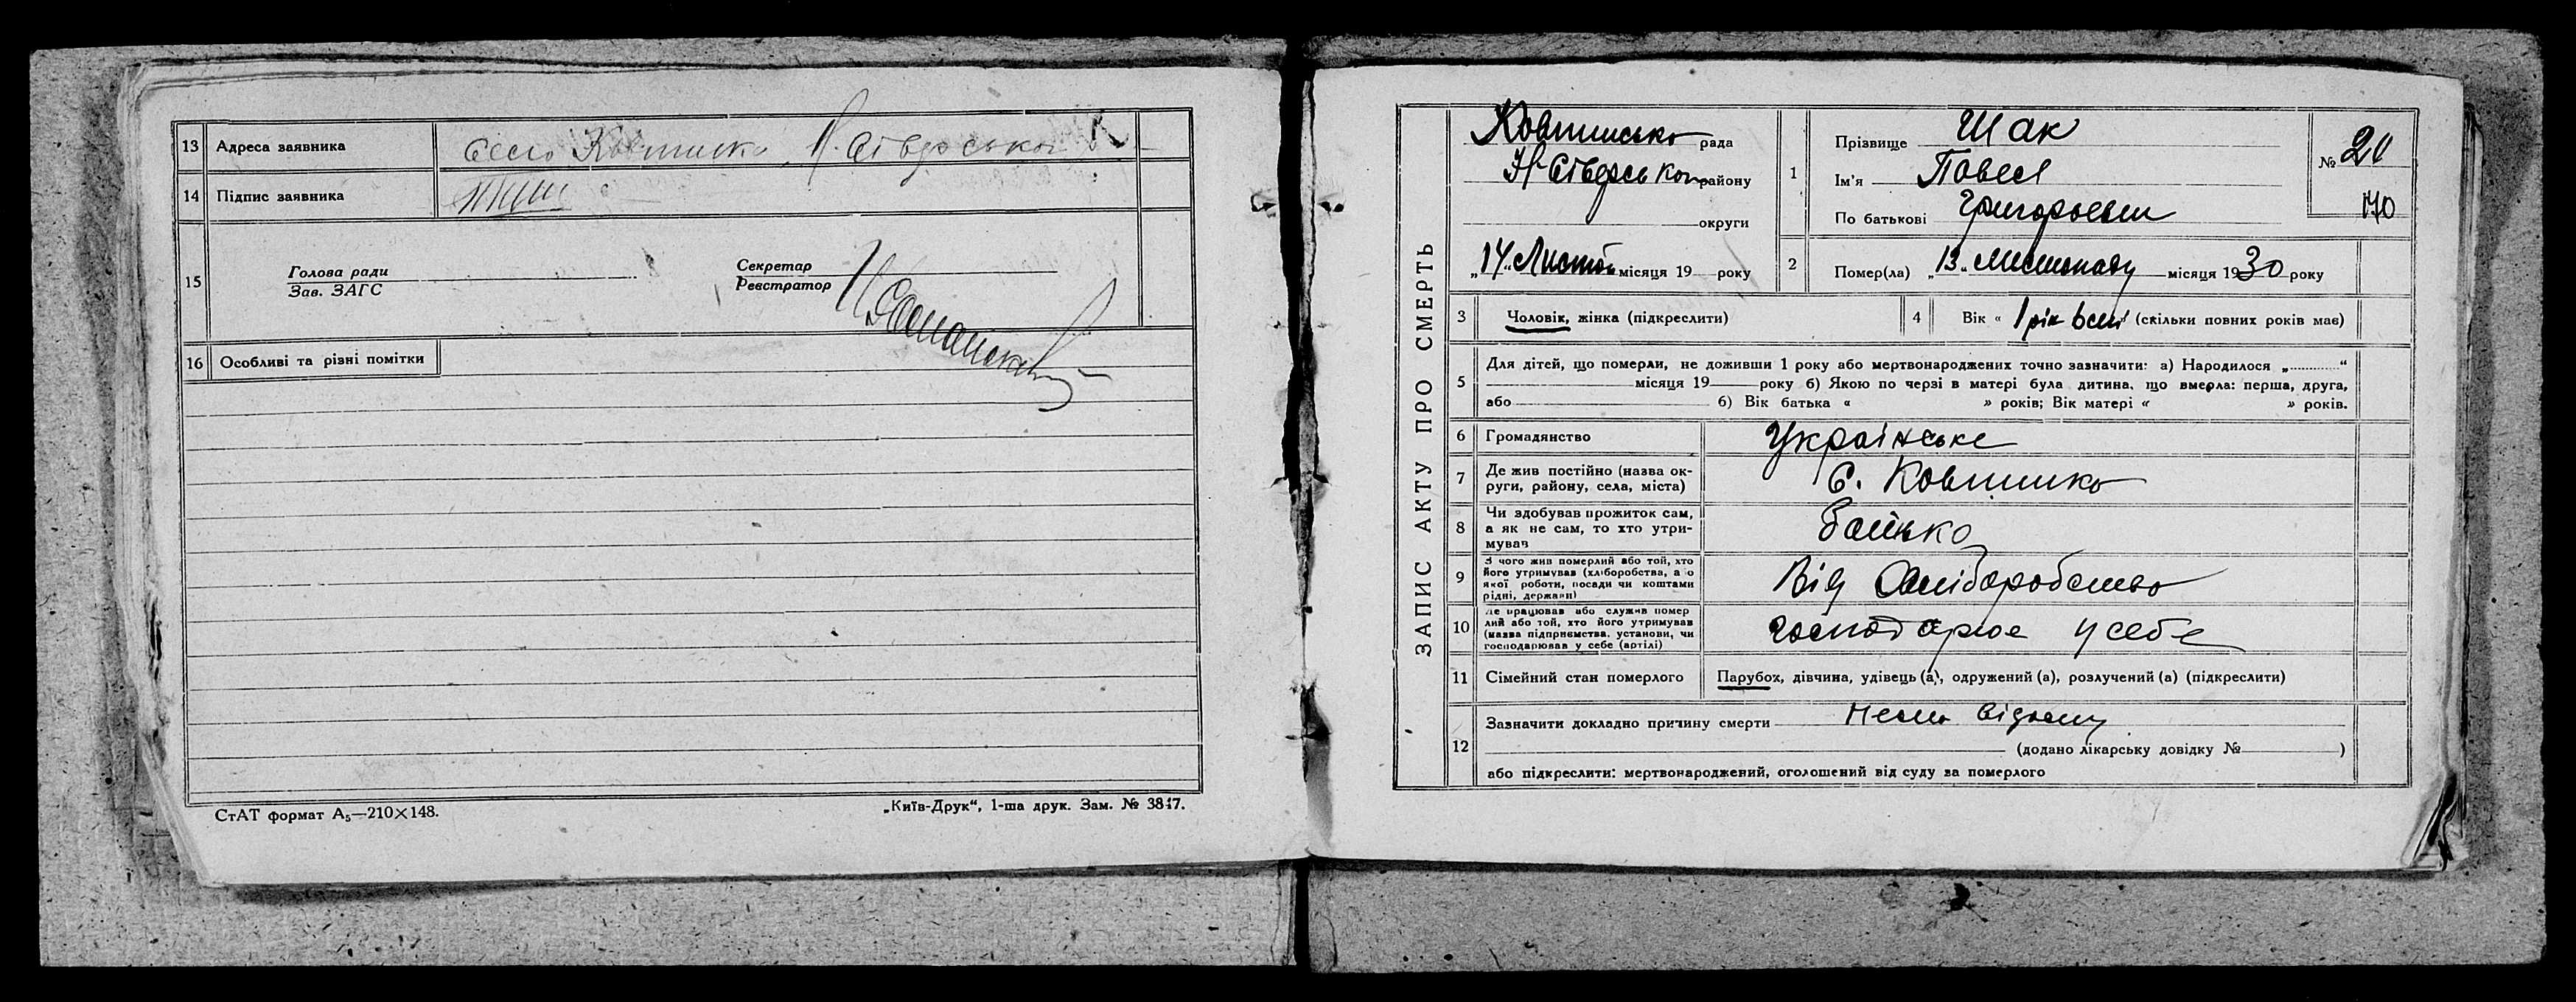 13 Адреса заявника село Ковтинка Н. Сіверськ
14 Підпис заявника
15 Голова ради
Зав. ЗАГС
Секретар
Реєстратор
16 Особливі та різні помітки
СтАТ формат А₅—210×148.
„Київ-Друк“, 1-ша друк. Зам. № 3847.
ЗАПИС АКТУ ПРО СМЕРТЬ
рада
Н-Сіверського району
округи
„14„ Листоп місяця 19 року
1 Прізвище Шак
Ім'я Павел
По батькові Григорьевич
№ 20
170
2 Помер(ла) „13„ листопаду місяця 1930 року
3 Чоловік, жінка (підкреслити)
4 Вік « 1 рік (скільки повних років має)
5 Для дітей, що померли, не доживши 1 року або мертвонароджених точно зазначити: а) Народилося „..........“
місяця 19 року б) Якою по черзі в матері була дитина, що вмерла: перша, друга,
або б) Вік батька « » років; Вік матері « » років.
6 Громадянство Українське
7 Де жив постійно (назва ок-
руги, району, села, міста) с. Ковтинка
8 Чи здобував прожиток сам,
а як не сам, то хто утри-
мував батько
9 З чого жив померлий або той, хто
його утримував (хліборобства, а о
якої роботи, посади чи коштами
рідні, держави) Від хліборобства
10 Де працював або служив помер
лий або той, хто його утримував
(назва підприємства, установи, чи
господарював у себе (артілі) господарює у себе
11 Сімейний стан померлого Парубок, дівчина, удівець (а), одружений (а), розлучений (а) (підкреслити)
12 Зазначити докладно причину смерти
(додано лікарську довідку № )
або підкреслити: мертвонароджений, оголошений від суду за померлого